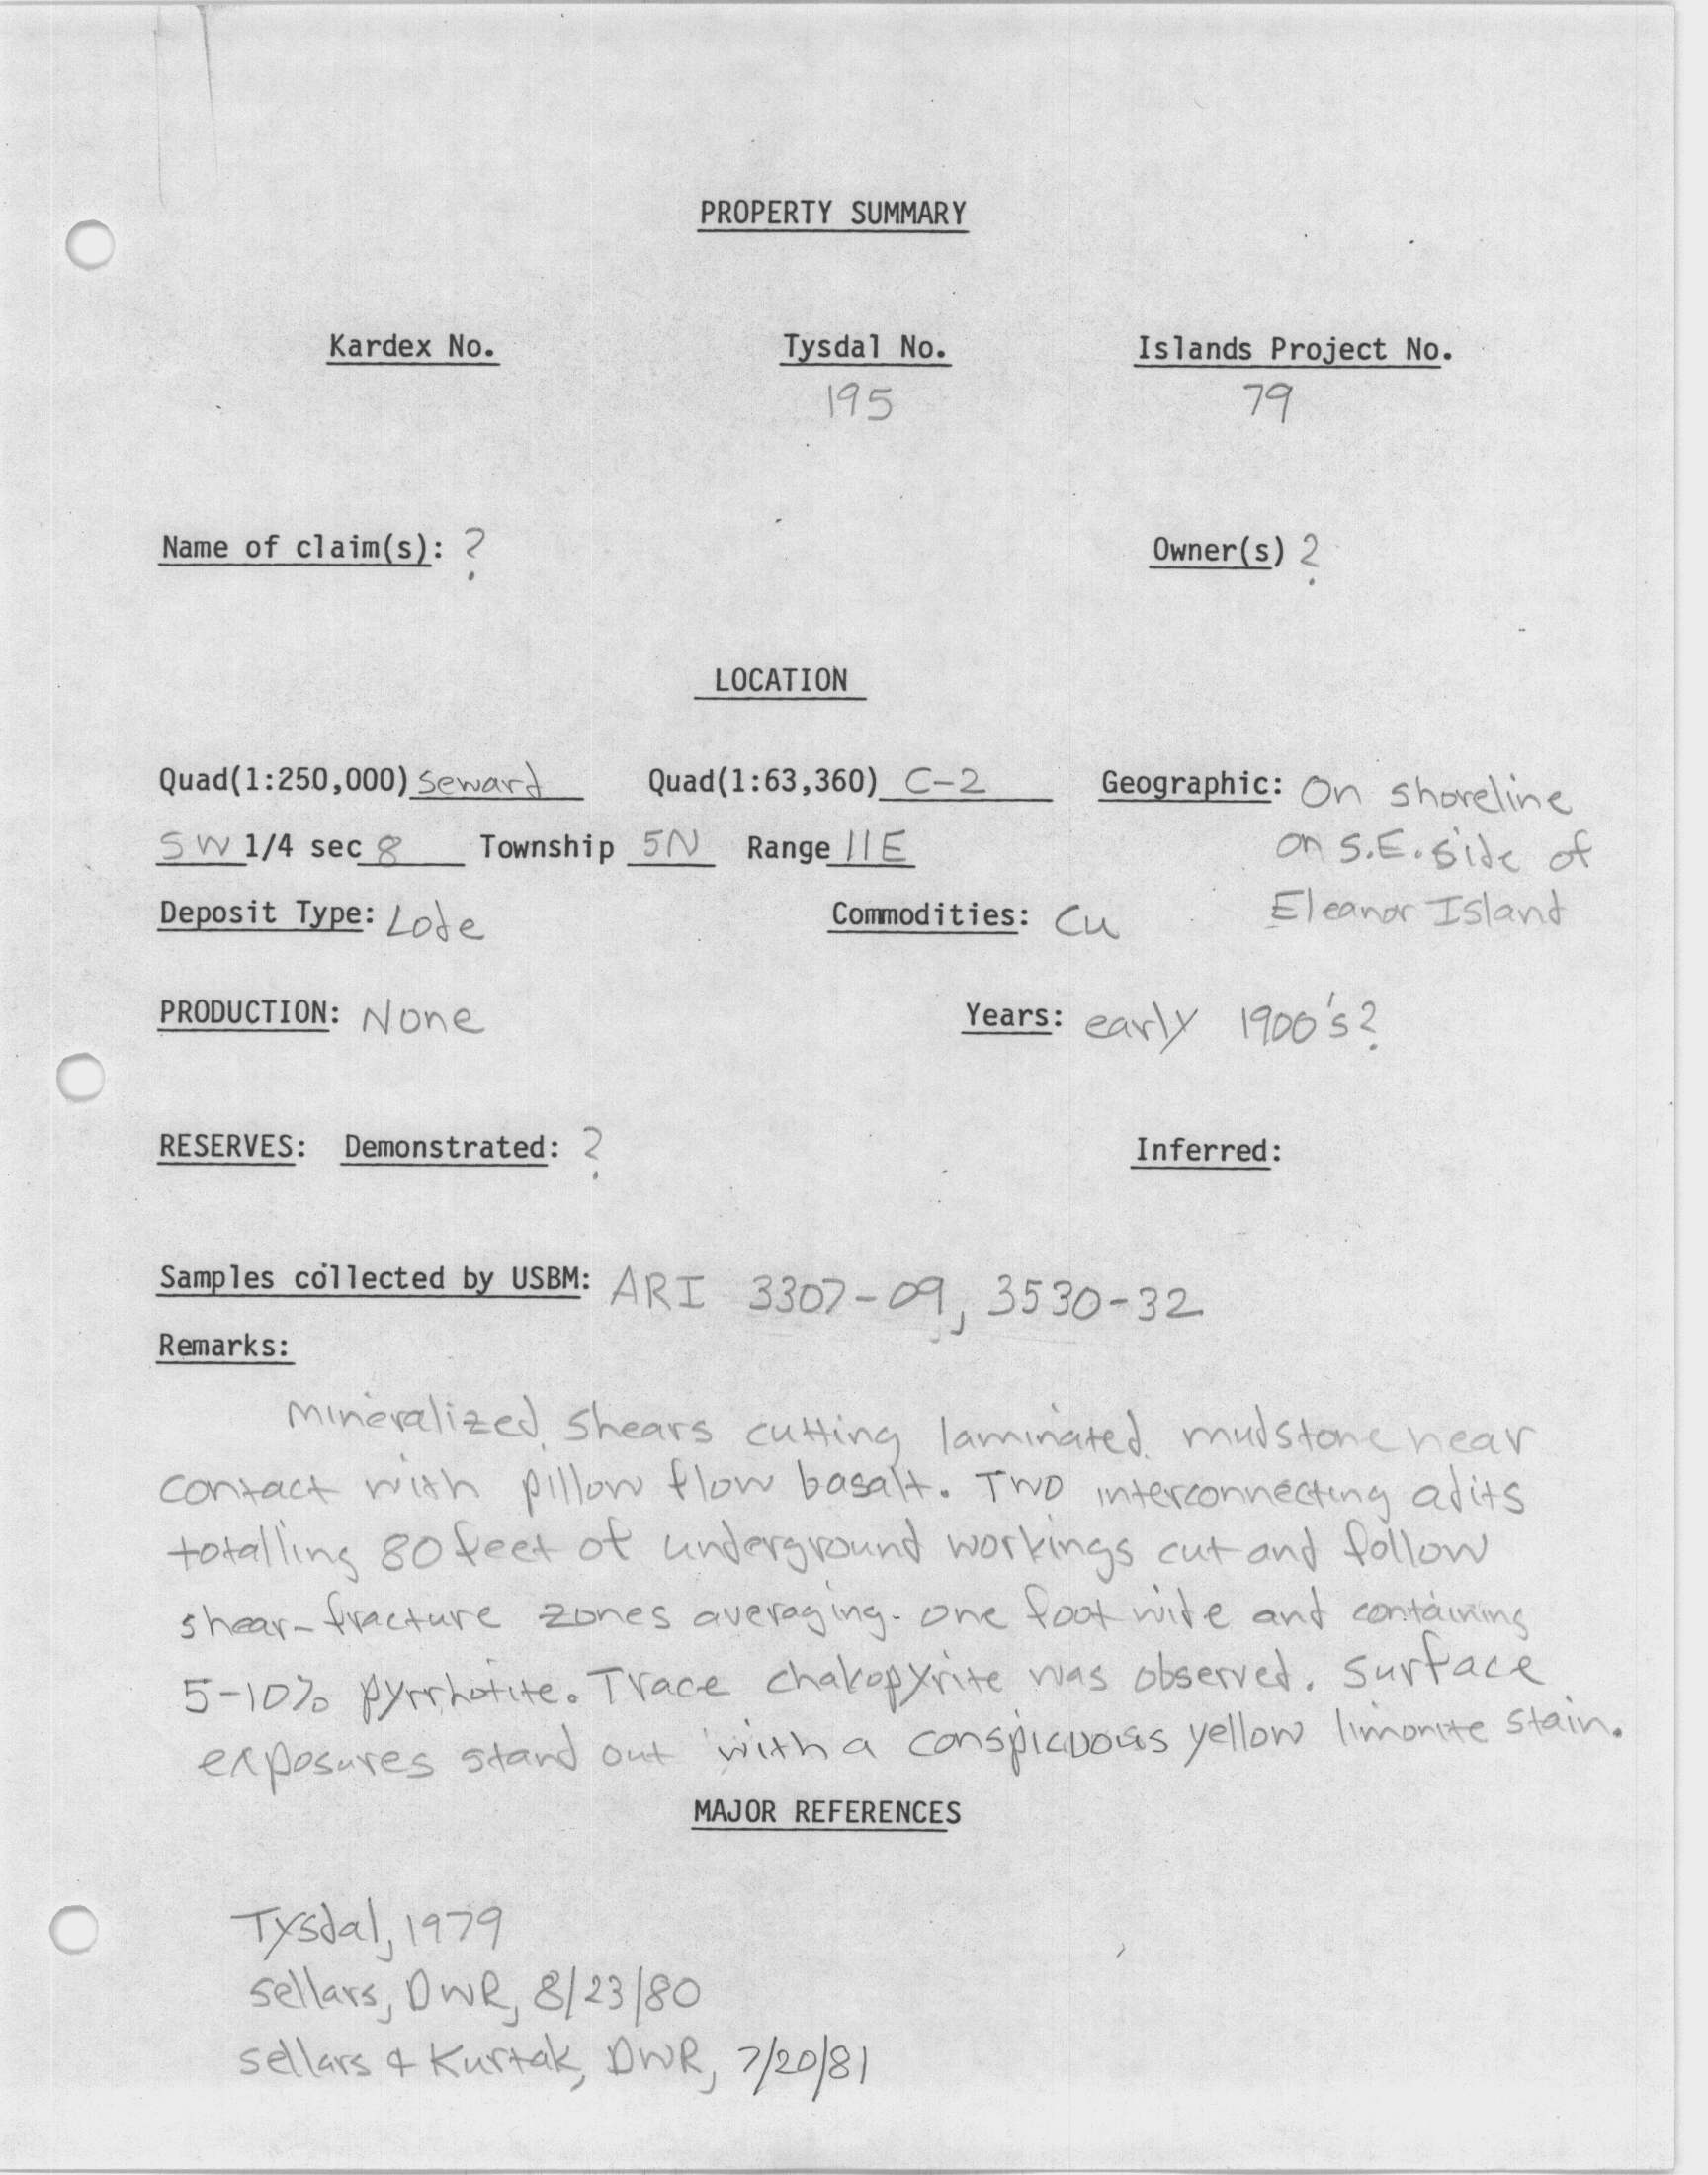 PROPERTY SUMMARY
Kardex No. Tysdal No. Islands Project No.
195 79
Name of claim(s): ? Owner(s) ?
LOCATION
Quad(1:250,000) Seward Quad(1:63,360) C-2 Geographic: On shoreline
SW 1/4 sec 8 Township 5N Range 11E on S.E. side of
Deposit Type: Lode Commodities: Cu Eleanor Island
PRODUCTION: None Years: early 1900's?
RESERVES: Demonstrated: ? Inferred:
Samples collected by USBM: ARI 3307-09, 3530-32
Remarks:
Mineralized shears cutting laminated mudstone near
contact with pillow flow basalt. Two interconnecting adits
totalling 80 feet of underground workings cut and follow
shear-fracture zones averaging one foot wide and containing
5-10% pyrrhotite. Trace chalcopyrite was observed. Surface
exposures stand out with a conspicuous yellow limonite stain.
MAJOR REFERENCES
Tysdal, 1979
Sellars, DWR, 8/23/80
Sellars & Kurtak, DWR, 7/20/81